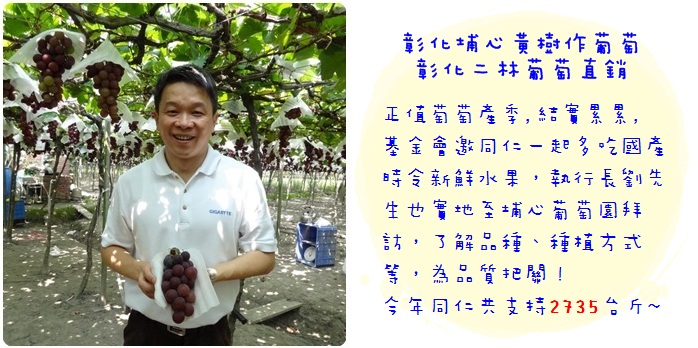 GIGABYTE
彰化埔心黃樹作葡萄
彰化二林葡萄直銷
正值葡萄產季,結實累累,
基金會邀同仁一起多吃國產
時令新鮮水果，執行長劉先
生也實地至埔心葡萄園拜
訪，了解品種、種植方式
等，為品質把關！
今年同仁共支持2735台斤~